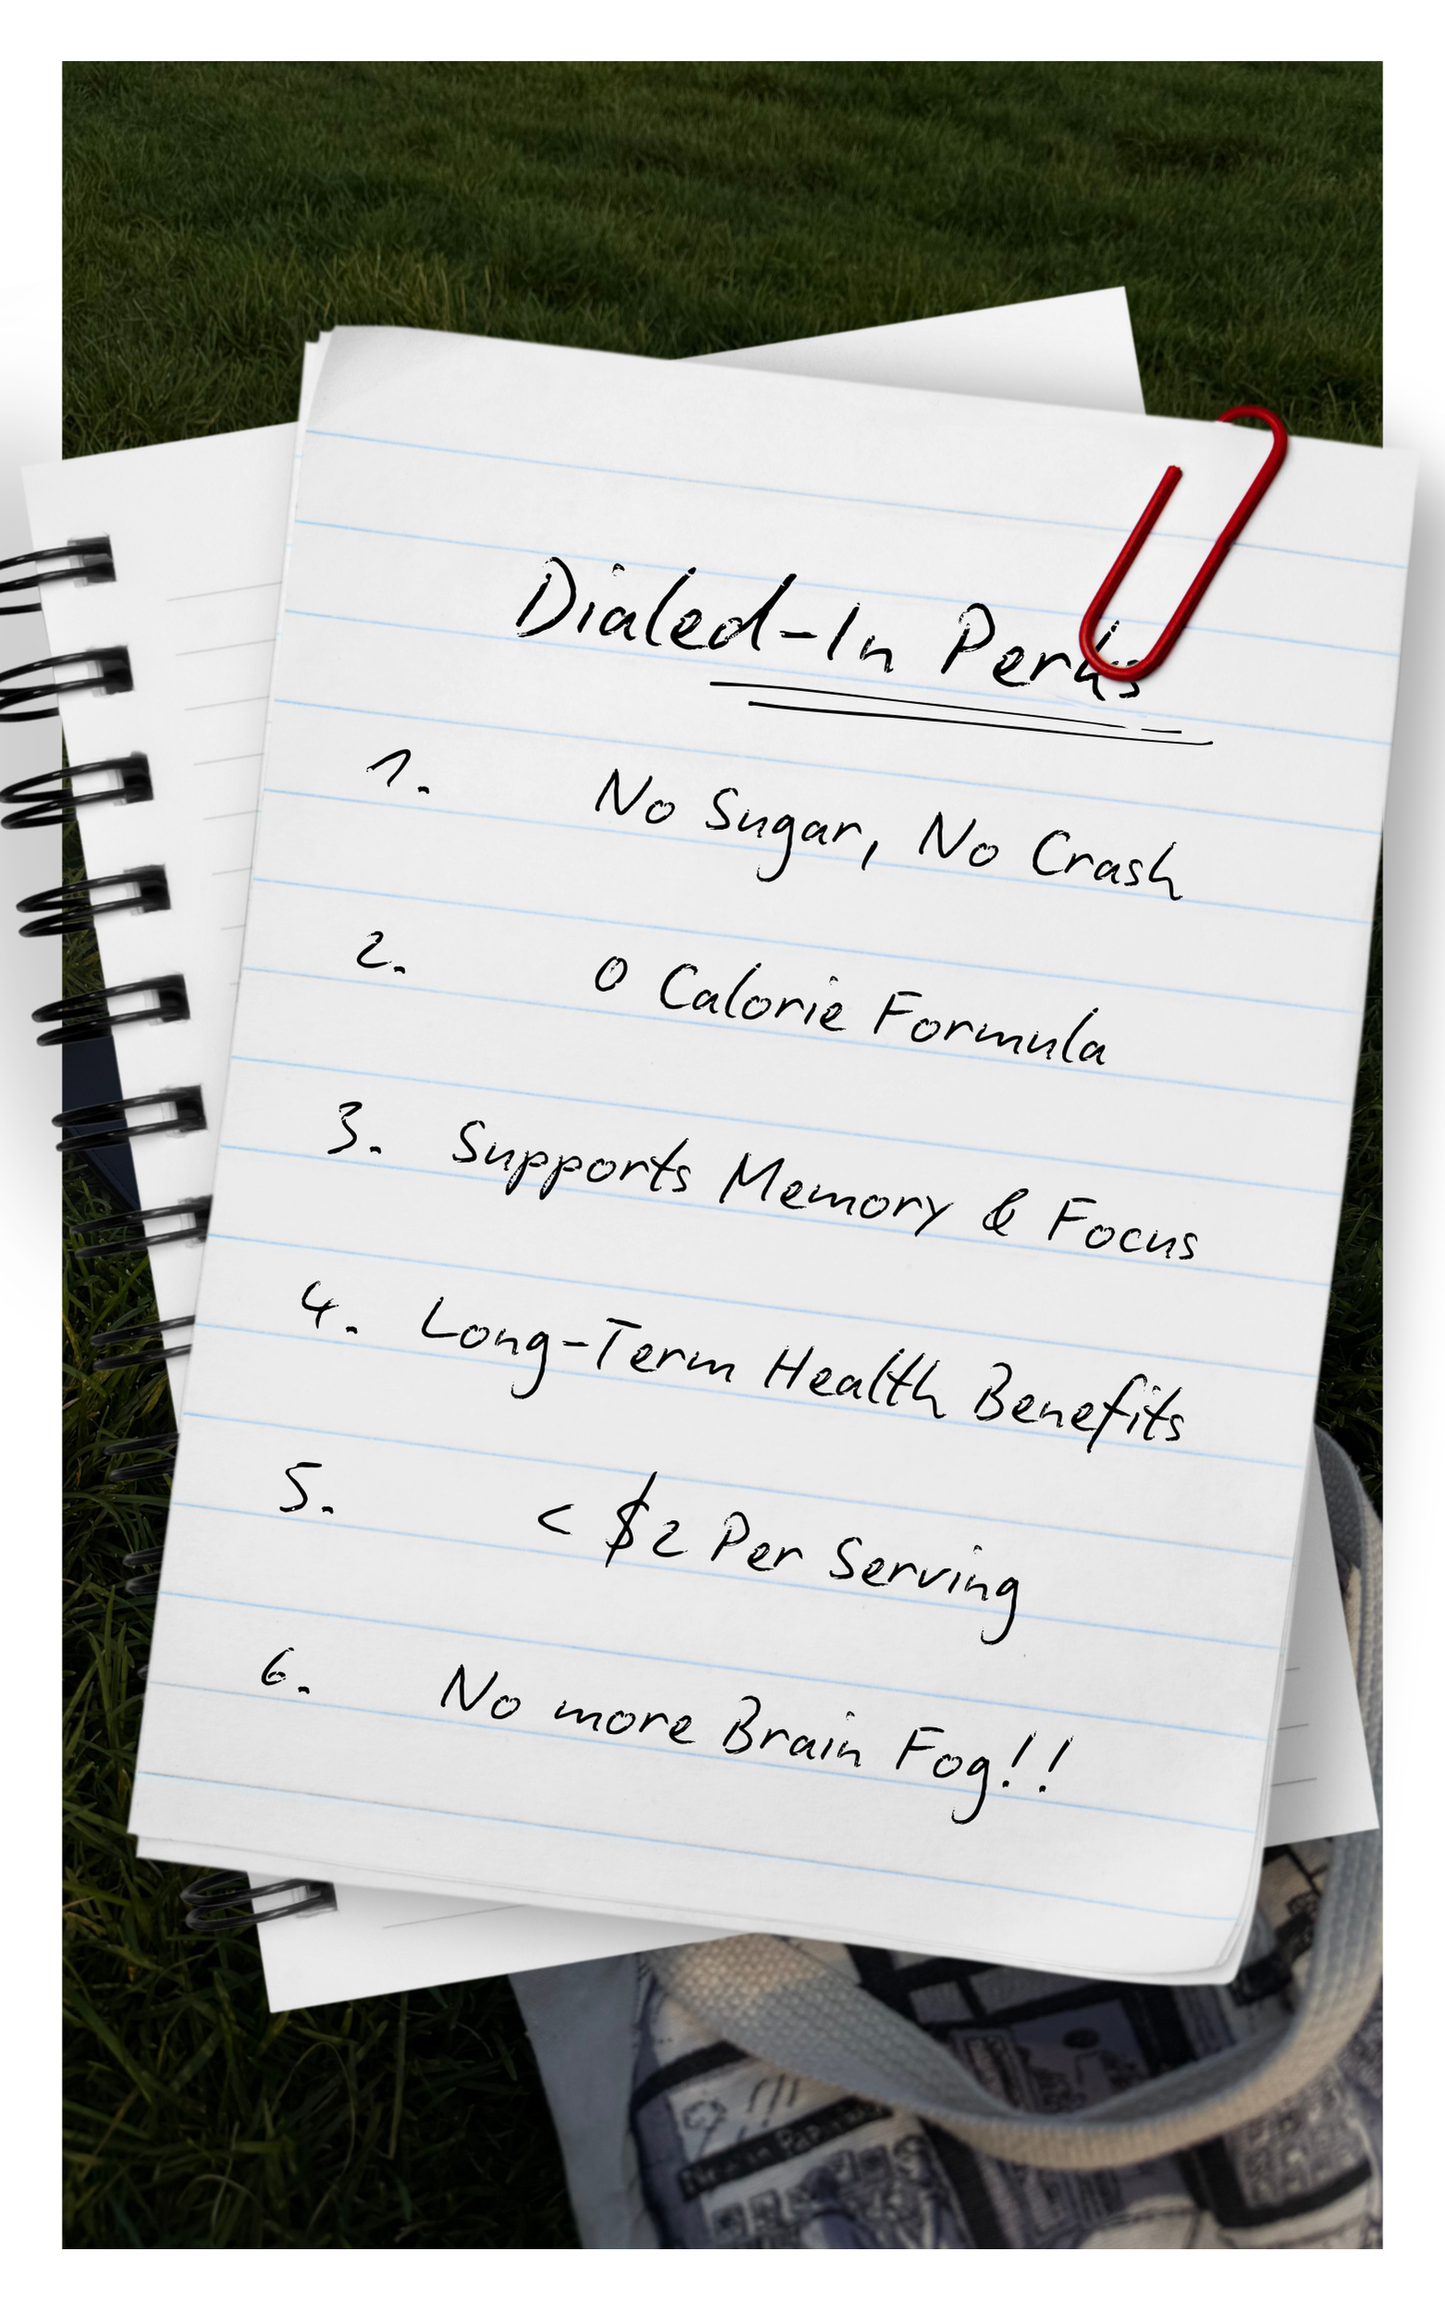 Dialed-In Perks
1. No Sugar, No Crash
2. 0 Calorie Formula
3. Supports Memory & Focus
4. Long-Term Health Benefits
5. < $2 Per Serving
6. No more Brain Fog!!